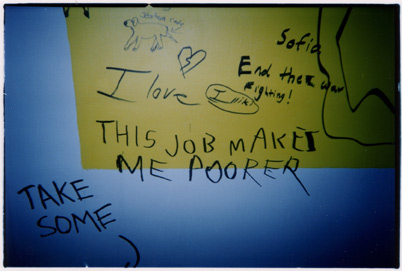 Sofia
End the war
fighting!
I love
THIS JOB MAKES
ME POORER
TAKE
SOME